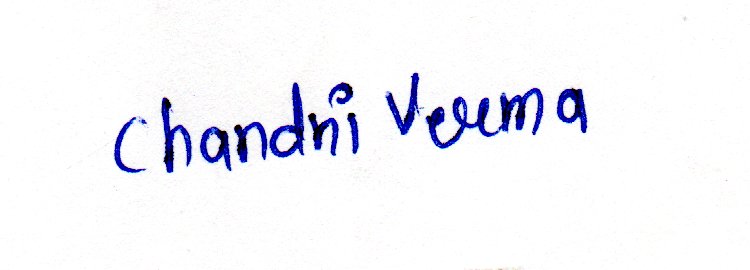 Chandni Verma